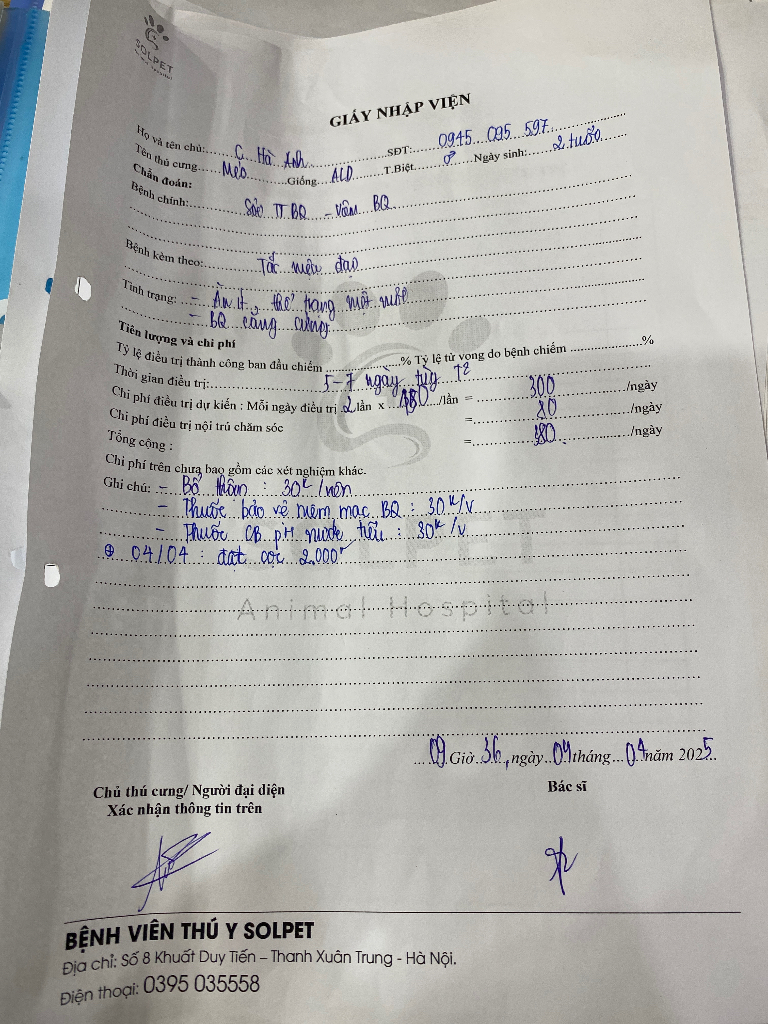 SOLPET
ANIMAL HOSPITAL
GIẤY NHẬP VIỆN
Họ và tên chủ: C. Hà Anh SĐT: 0945 095 597
Tên thú cưng Mèo Giống ALD T.Biệt ♂ Ngày sinh: 2 tuổi
Chẩn đoán:
Bệnh chính: Sỏi TT BQ – Viêm BQ
Bệnh kèm theo: Tắc niệu đạo
Tình trạng: – Ăn ít, thể trạng mệt mỏi
– BQ căng cứng
Tiên lượng và chi phí
Tỷ lệ điều trị thành công ban đầu chiếm % Tỷ lệ tử vong do bệnh chiếm %
Thời gian điều trị: 5-7 ngày tùy T2
Chi phí điều trị dự kiến : Mỗi ngày điều trị 2 lần x /lần = 300 /ngày
Chi phí điều trị nội trú chăm sóc = 80 /ngày
Tổng cộng : = 380 /ngày
Chi phí trên chưa bao gồm các xét nghiệm khác.
Ghi chú: – Bổ thận : 30k/viên
– Thuốc bảo vệ niêm mạc BQ : 30k/v
– Thuốc CB pH nước tiểu : 30k/v
⊕ 04/04 : đặt cọc 2.000k
SOLPET
Animal Hospital
09 Giờ 36, ngày 04 tháng 04 năm 2025
Chủ thú cưng/ Người đại diện Bác sĩ
Xác nhận thông tin trên
BỆNH VIỆN THÚ Y SOLPET
Địa chỉ: Số 8 Khuất Duy Tiến – Thanh Xuân Trung - Hà Nội.
Điện thoại: 0395 035558